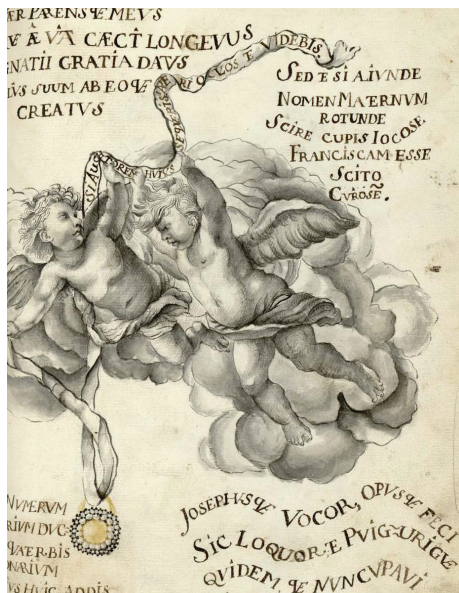 PARENS QE MEVS
CÆCT LONGEVUS
GNATII GRATIA DAVS
SUUM AB EO QE
CREATVS
SI AUCTOREM HUIUS
OCVLOS E VIDEBIS
SED E SI AIVNDE
NOMEN MATERNVM
ROTUNDE
SCIRE CUPIS IOCOSE
FRANCISCAM ESSE
SCITO
CVROSE.
NVMERVM
RIVM DVC
QVAERBIS
ONARIVM
VS HVIC ADDIS
JOSEPHVS QE VOCOR, OPVS QE FECI
SIC LOQVOR. E PVIG-VRIGVE
QVIDEM, QE NVNCVPAVI